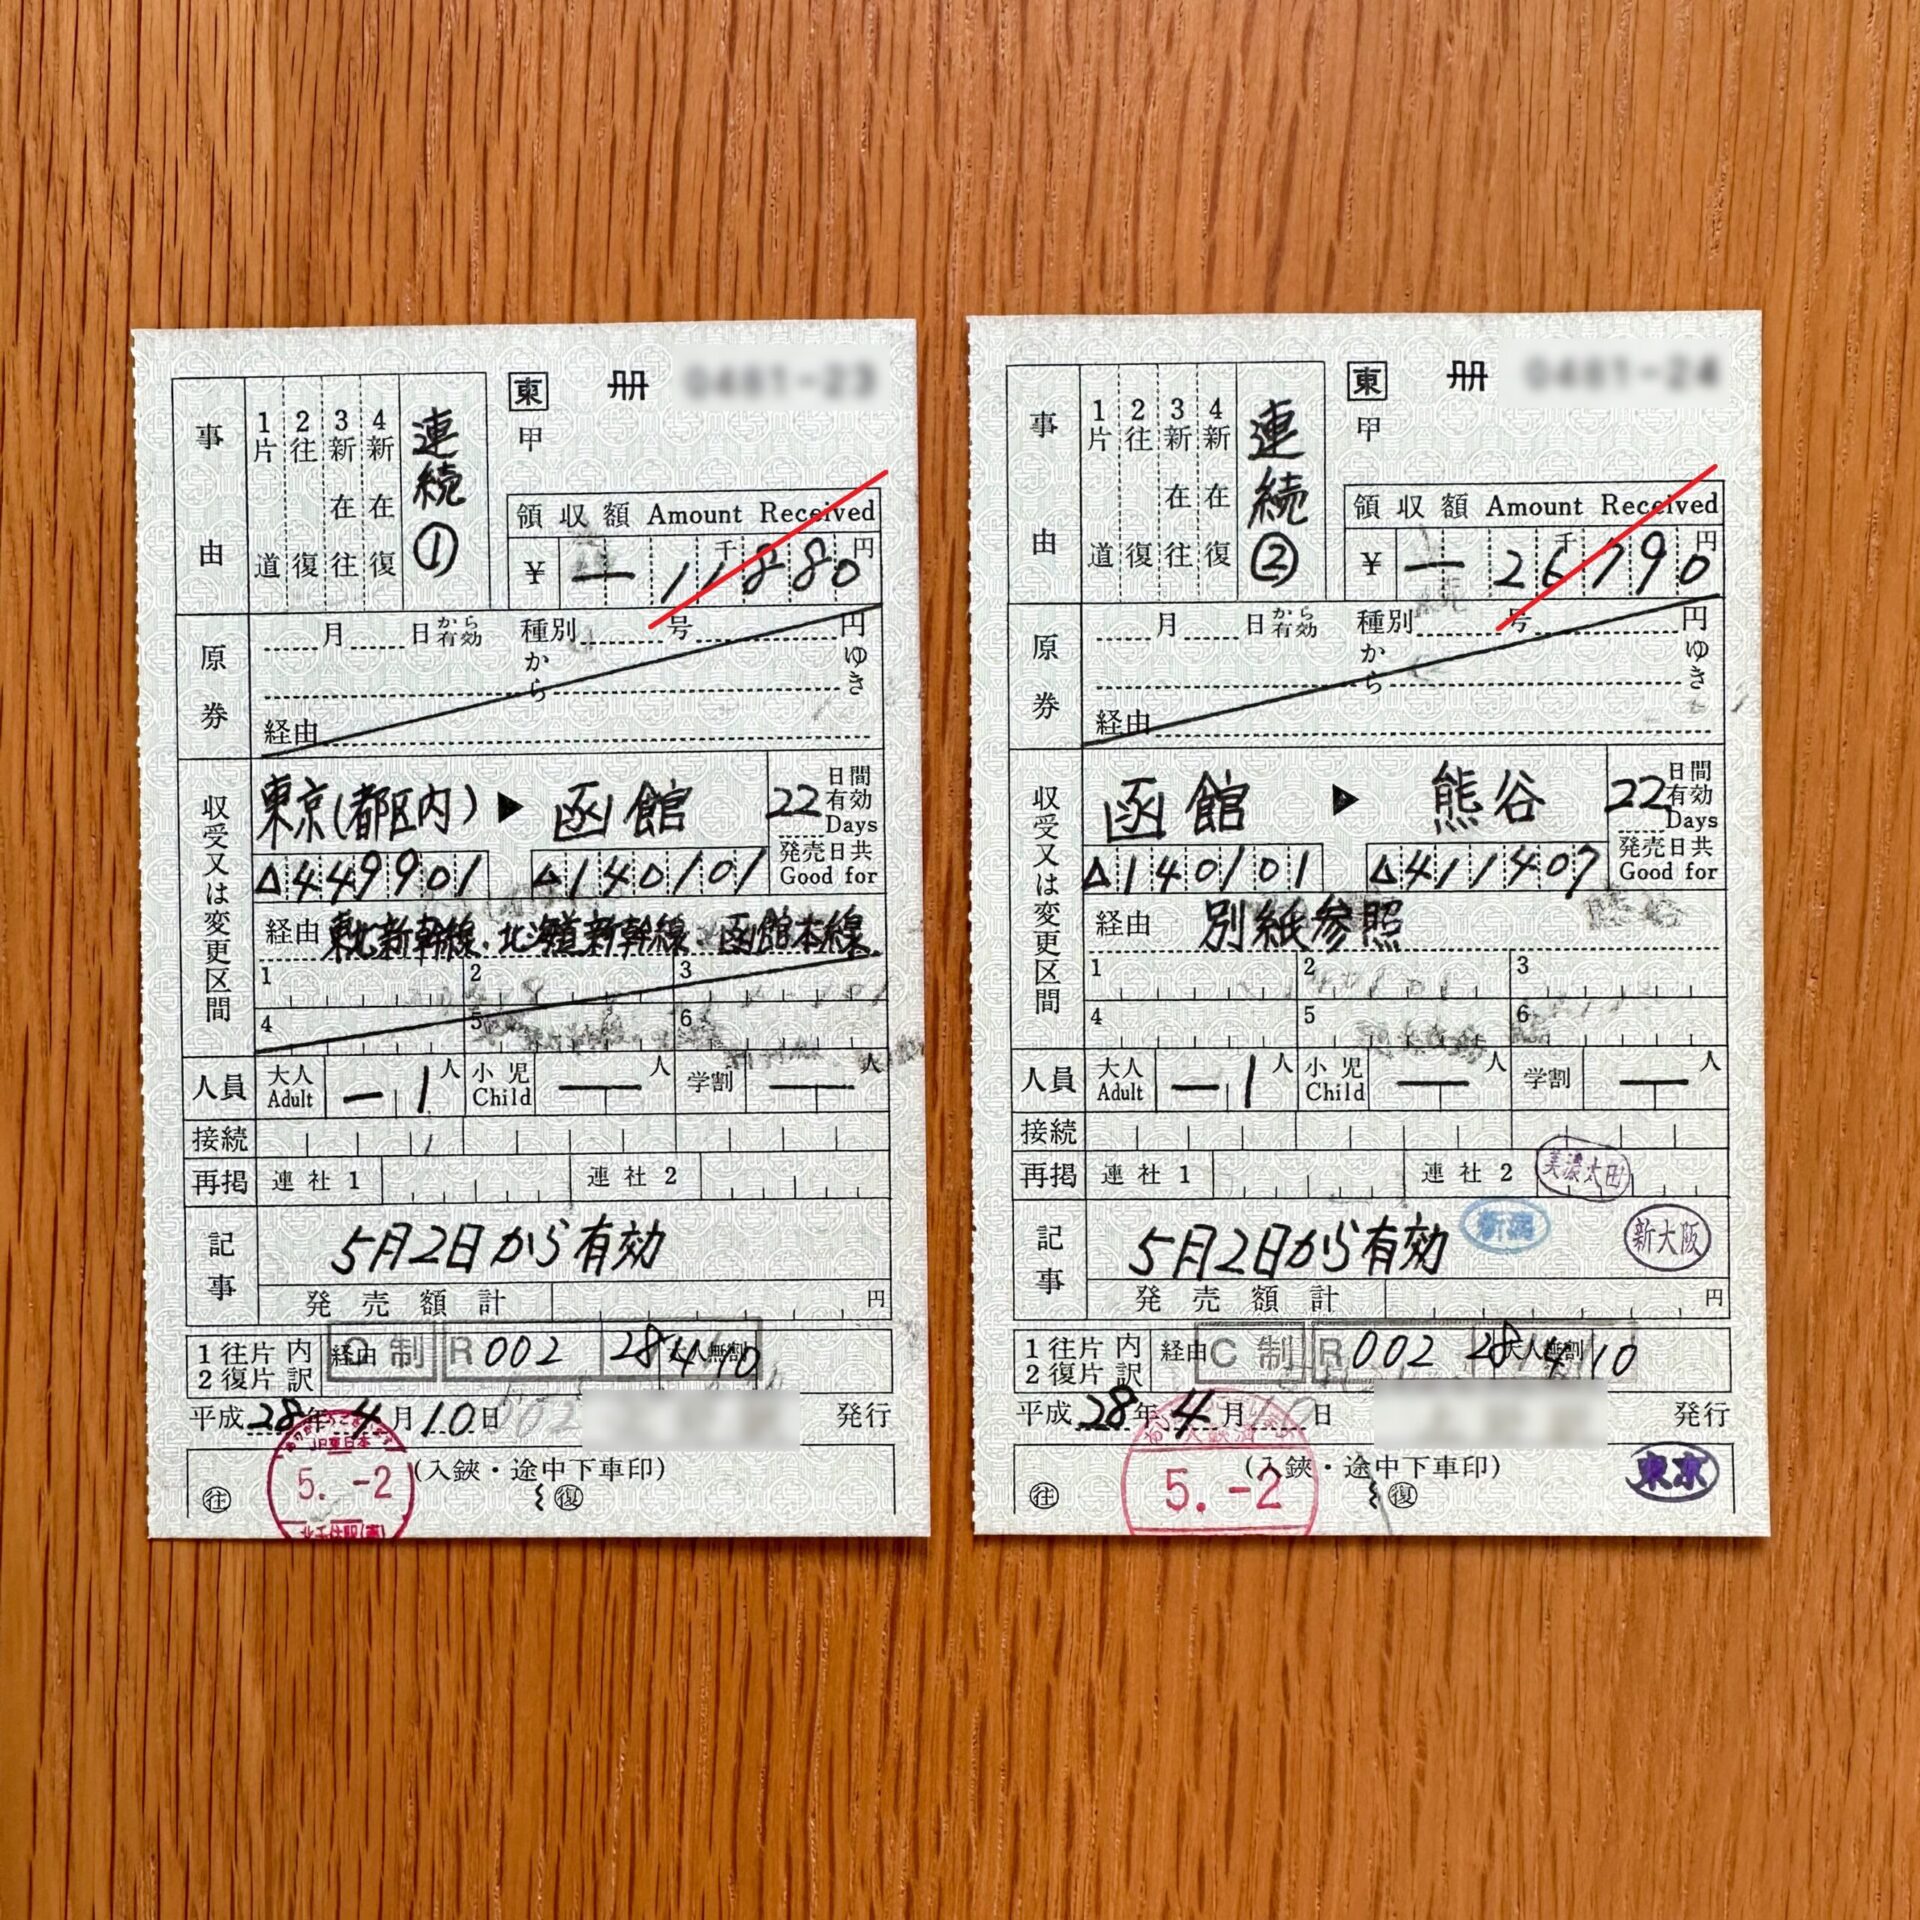 事由
1片道
2往復
3新在往
4新在復
連続①
東 冊
甲
領収額 Amount Received
¥ ー 11880 千 円
原券
月 日から有効 種別 号 円
から ゆき
経由
収受又は変更区間
東京(都区内) ▶ 函館
22 日間有効 Days
発売日共 Good for
△449901 △140101
経由 東北新幹線、北海道新幹線、函館本線
1 2 3
4 5 6
人員 大人 Adult ー 1人 小児 Child ー 人 学割 ー 人
接続
再掲 連社1 連社2
記事 5月2日から有効
発売額計 円
1往片内
2復片訳
経由 C制 R 002 28 4 10 大人無割
平成28年4月10日 発行
(入鋏・途中下車印)
往 復
JR東日本
5.-2
事由
1片道
2往復
3新在往
4新在復
連続②
東 冊
甲
領収額 Amount Received
¥ ー 26790 千 円
原券
月 日から有効 種別 号 円
から ゆき
経由
収受又は変更区間
函館 ▶ 熊谷
22 日間有効 Days
発売日共 Good for
△140101 △411407
経由 別紙参照
1 2 3
4 5 6
人員 大人 Adult ー 1人 小児 Child ー 人 学割 ー 人
接続
再掲 連社1 連社2 美濃太田
記事 5月2日から有効
新大阪
発売額計 円
1往片内
2復片訳
経由 C制 R 002 28 4 10 大人無割
平成28年4月10日 発行
(入鋏・途中下車印)
往 復
5.-2
東京